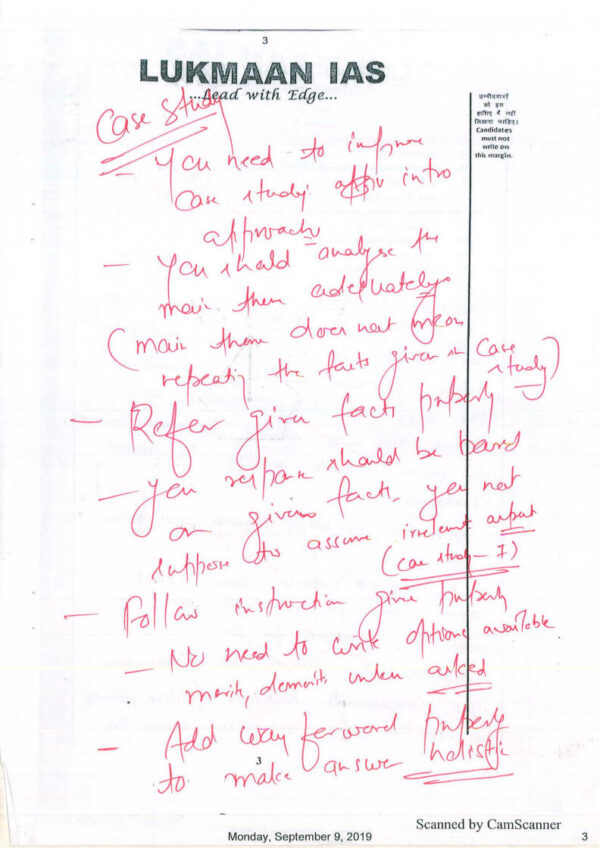 3
LUKMAAN IAS
...Lead with Edge...
उम्मीदवारों
को इस
हाशिए में नहीं
लिखना चाहिए।
Candidates
must not
write on
this margin.
Case Study
- You need to improve
Case study intro
approach
- You should analyse the
main them adequately
(main theme does not mean
repeating the facts given in Case
study)
- Refer given facts properly
- You response should be based
on given facts, you not
suppose to assume irrelevant aspect
(Case study - 7)
- Follow instruction give properly
- No need to write options available
merits, demerits unless asked
- Add way forward properly
to make answer holistic
3
Scanned by CamScanner
Monday, September 9, 2019
3